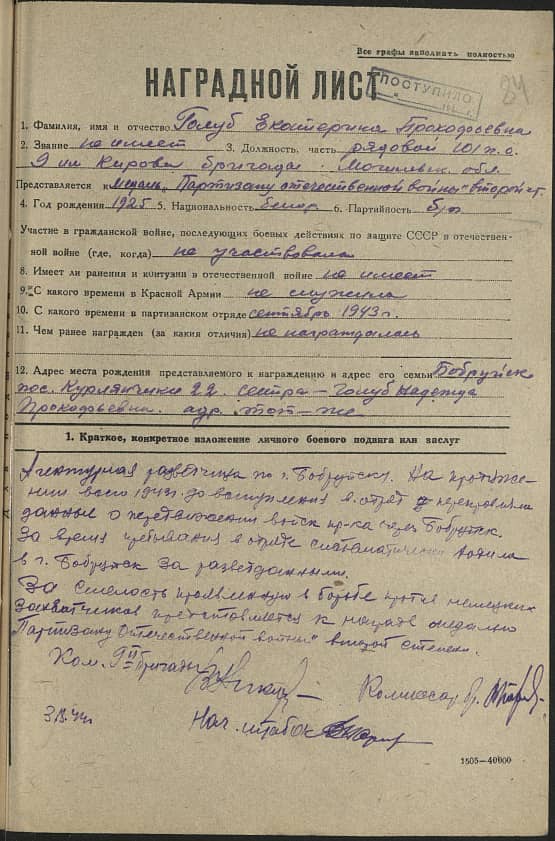 Все графы заполнять полностью
НАГРАДНОЙ ЛИСТ
ПОСТУПИЛО
84
1. Фамилия, имя и отчество Голуб Екатерина Прокофьевна
2. Звание не имеет 3. Должность, часть рядовой 101 п.о.
9 им Кирова бригады Могилевск. обл.
Представляется к медаль „Партизану отечественной войны" второй ст.
4. Год рождения 1925 5. Национальность белор 6. Партийность б/п
Участие в гражданской войне, последующих боевых действиях по защите СССР в отечествен-
ной войне (где, когда) не участвовала
8. Имеет ли ранения и контузии в отечественной войне не имеет
9. С какого времени в Красной Армии не служила
10. С какого времени в партизанском отряде сентябрь 1943 г.
11. Чем ранее награжден (за какия отличия) не награждалась
12. Адрес места рождения представляемого к награждению и адрес его семьи Бобруйск
пос. Курлянчики 22. сестра - Голуб Надежда
Прокофьевна. адр. тот-же
1. Краткое, конкретное изложение личного боевого подвига или заслуг
Агентурная разведчица по г. Бобруйску. На протяже-
нии всего 1943г. до вступления в отряд переправляла
данные о передвижении войск пр-ка через Бобруйск.
За время пребывания в отряде систематически ходила
в г. Бобруйск за разведданными.
За смелость проявленную в борьбе против немецких
захватчиков представляется к награде медалью
„Партизану Отечественной войны" второй степени.
Ком. 9й бригады
Комиссар бр.
Нач. штаба
1505—40000